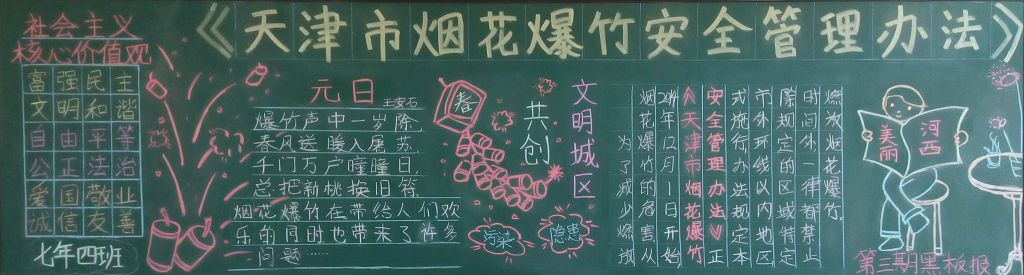 《天津市烟花爆竹安全管理办法》
社会主义
核心价值观
富强民主
文明和谐
自由平等
公正法治
爱国敬业
诚信友善
七年四班
元日
王安石
爆竹声中一岁除
春风送暖入屠苏
千门万户曈曈日
总把新桃换旧符
烟花爆竹在带给人们欢
乐的同时也带来了许多
问题……
春
共创
文明城区
污染
隐患
为了减少燃放
烟花爆竹的危害从
2017年12月1日开始
《天津市烟花爆竹
安全管理办法》正
式施行办法规定本
市外环线以内地区
除规定的区域特定
时间外一律都禁止
燃放烟花爆竹。
美丽
河西
第三期黑板报